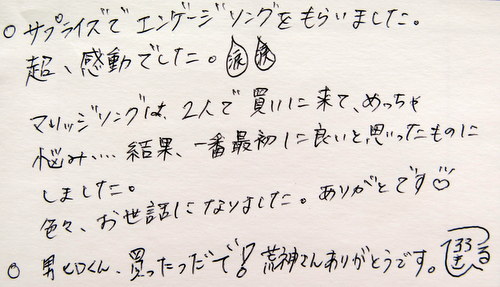 ○ サプライズでエンゲージソングをもらいました。
超、感動でした。涙 涙
マリッジソングは、2人で買いに来て、めっちゃ
悩み、… 結果、一番最初に良いと思ったものに
しました。
色々、お世話になりました。ありがとです♡
○ 男ヒロくん、買ったっだで! 荒神さんありがとうです。